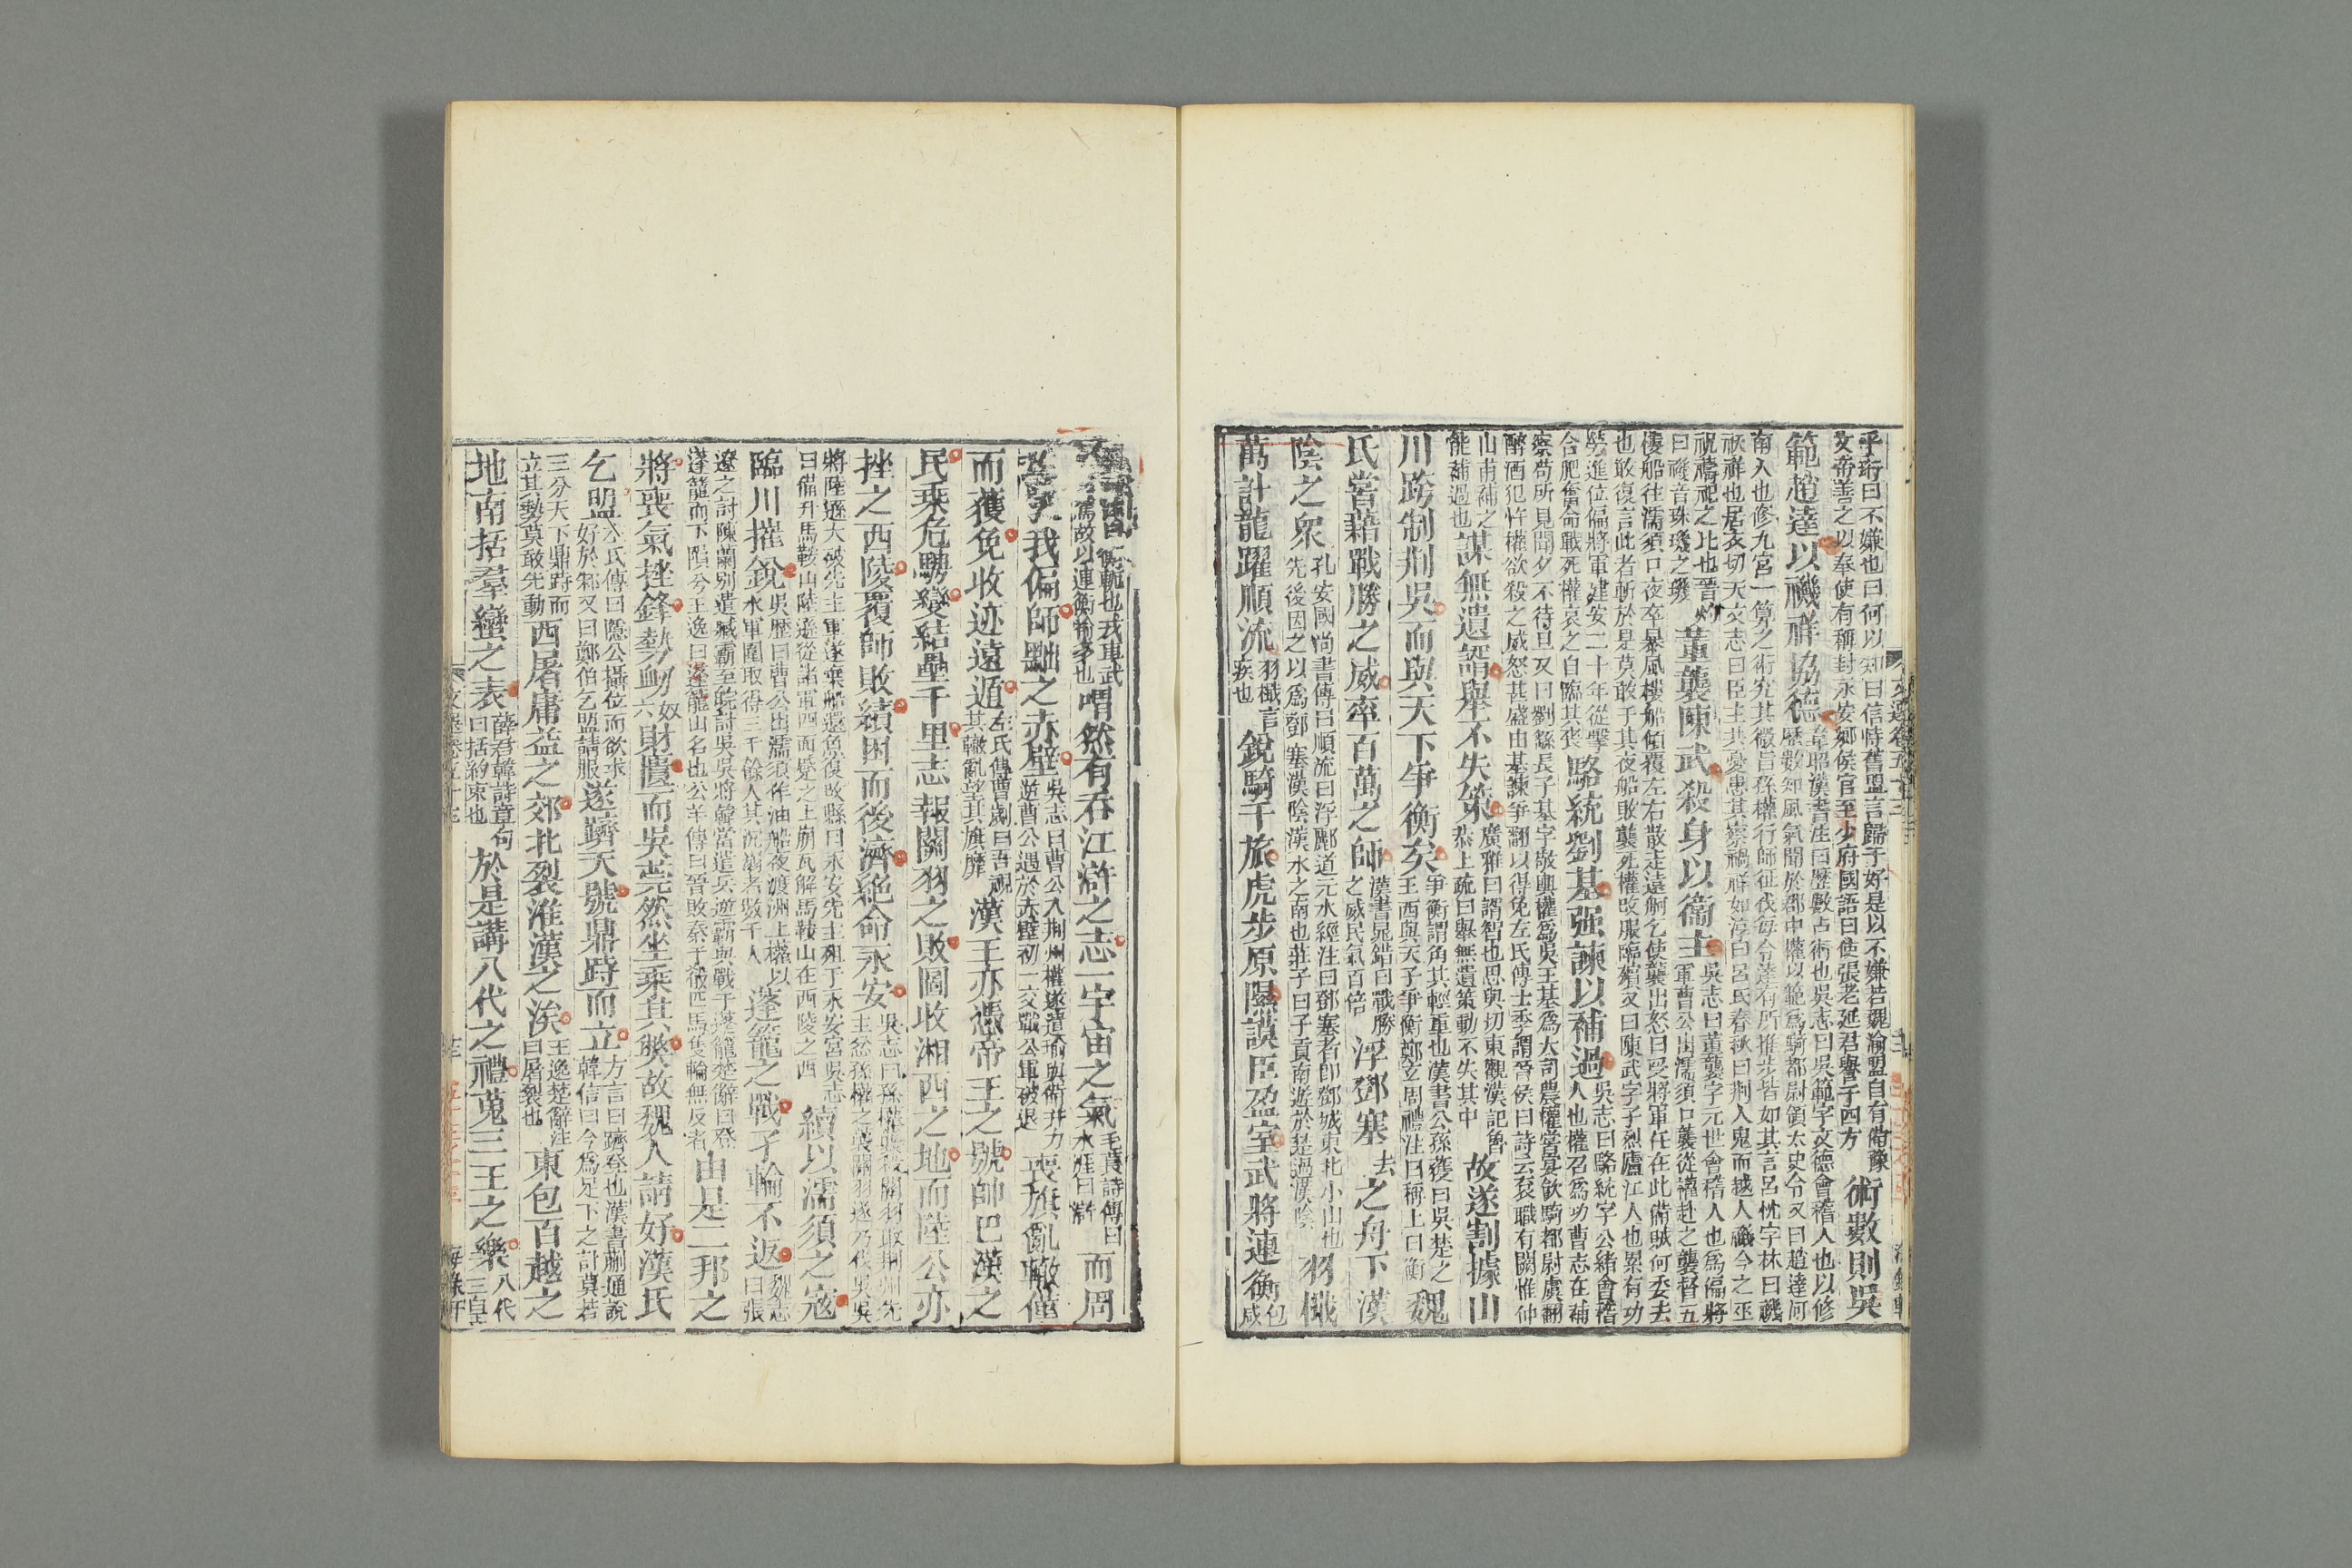 乎珩曰不嫌也曰何以知曰信恃舊盟言歸于好是以不嫌若魏渝盟自有備豫
文帝善之以奉使有稱封永安鄉侯官至少府國語曰使張老延君譽于四方
術數則吳
範趙達以禨祥協德
韋昭漢書注曰歷數占術也吳志曰吳範字文德會稽人也以修
歷數知風氣聞於郡中權以範為騎都尉領太史令又曰趙達河
南人也修九宮一算之術究其微旨孫權行師征伐每令達有所推步皆如其言呂忱字林曰禨
祅祥也居衣切天文志曰臣主共憂患其察禨祥如淳曰呂氏春秋曰荆人鬼而越人禨今之巫
祝禱祀之比也晉灼
曰禨音珠璣之璣
董襲陳武殺身以衞主
吳志曰董襲字元世會稽人也為偏將
軍曹公出濡須口襲從權赴之襲督五
樓船往濡須口夜卒暴風樓船傾覆左右散走遠舸乞使襲出怒曰受將軍任在此備賊何委去
也敢復言此者斬於是莫敢于其夜船敗襲死權改服臨殯又曰陳武字子烈廬江人也累有功
勞進位偏將軍建安二十年從擊
合肥奮命戰死權哀之自臨其喪
駱統劉基强諫以補過
吳志曰駱統字公緒會稽
人也權召為功曹志在補
察苟所見聞夕不待旦又曰劉繇長子基字敬輿權為吳王基為大司農權嘗宴飲騎都尉虞翻
醉酒犯忤權欲殺之威怒甚盛由基諫爭翻以得免左氏傳士季謂晉侯曰詩云衮職有闕惟仲
山甫補之
能補過也
謀無遺諝舉不失策
廣雅曰諝智也思與切東觀漢記魯
恭上疏曰舉無遺策動不失其中
故遂割據山
川跨制荆吳而與天下爭衡矣
爭衡謂角其輕重也漢書公孫玃曰吳楚之
王西與天子爭衡鄭玄周禮注曰稱上曰衡
魏
氏嘗藉戰勝之威率百萬之師
漢書晁錯曰戰勝
之威民氣百倍
浮鄧塞
去
之舟下漢
陰之衆
孔安國尚書傳曰順流曰浮酈道元水經注曰鄧塞者卽鄧城東北小山也
先後因之以為鄧塞漢陰漢水之南也莊子曰子貢南遊於楚過漢陰
羽檝
萬計龍躍順流
羽檝言
疾也
銳騎千旅虎步原隰謨臣盈室武將連衡
包
咸
衡軛也戎車武
爲故以連衡喻多也
喟然有吞江滸之志一宇宙之氣
毛萇詩傳曰
水涯曰滸
而周
我偏師黜之赤壁
吳志曰曹公入荆州權遂遣瑜與備并力
逆曹公遇於赤壁初一交戰公軍破退
喪旗亂轍僅
而獲免收迹遠遁
左氏傳曹劌曰吾視
其轍亂望其旗靡
漢王亦憑帝王之號帥巴漢之
民乘危騁變結壘千里志報關羽之敗圖收湘西之地而陸公亦
挫之西陵覆師敗績困而後濟絕命永安
吳志曰孫權襲殺關羽取荆州先
主忿孫權之襲關羽遂乃伐吳吳
將陸遜大破先主軍遂棄船還魚復改縣曰永安先主殂于永安宮吳志
曰備升馬鞍山陸遜從諸軍四面蹙之土崩瓦解馬鞍山在西陵之西
續以濡須之寇
臨川摧銳
吳歷曰曹公出濡須作油船夜渡洲上權以
水軍圍取得三千餘人其沉溺者數千人
蓬籠之戰孑輪不返
魏志
曰張
遼之討陳蘭別遣臧霸至皖討吳吳將韓當遣兵逆霸與戰于蓬籠楚辭曰登
蓬籠而下隕兮王逸曰蓬籠山名也公羊傳曰晉敗秦于殽匹馬隻輪無反者
由是二邦之
將喪氣挫鋒勢衂
奴
六
財匱而吳莞然坐乘其獘故魏人請好漢氏
乞盟
左氏傳曰隱公攝位而欲求
好於邾又曰鄭伯乞盟請服
遂躋天號鼎跱而立
方言曰躋登也漢書蒯通說
韓信曰今為足下之計莫若
三分天下鼎跱而
立其勢莫敢先動
西屠庸益之郊北裂淮漢之涘
王逸楚辭注
曰屠裂也
東包百越之
地南括羣蠻之表
薛君韓詩章句
曰括約束也
於是講八代之禮蒐三王之樂
八代
三皇五